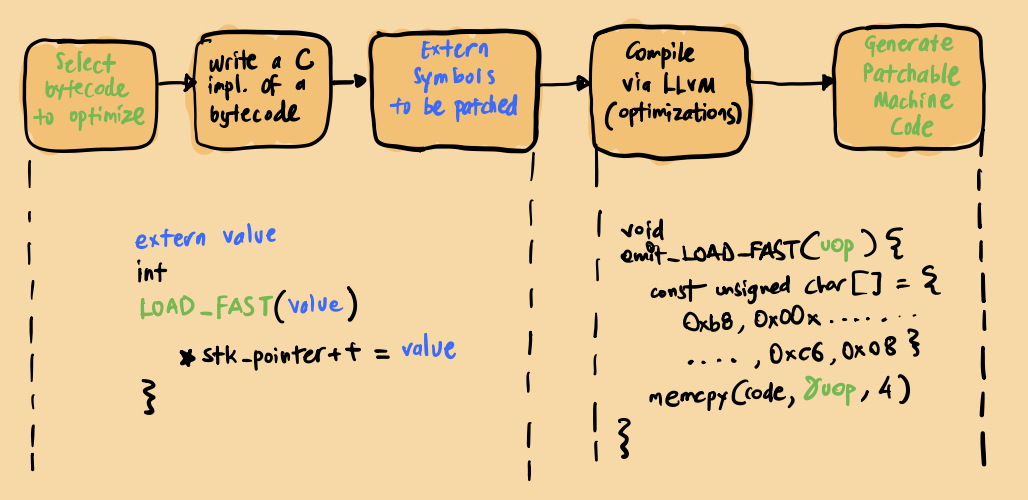 Select
bytecode
to optimize
Write a C
impl. of a
bytecode
Extern
Symbols
to be patched
Compile
via LLVM
(optimizations)
Generate
Patchable
Machine
Code
extern value
int
LOAD_FAST(value)
*stk_pointer++ = value
}
void
emit_LOAD_FAST(uop) {
const unsigned char[] = {
0xb8, 0x00x.......
...., 0xc6, 0x08 }
memcpy(code, &uop, 4)
}